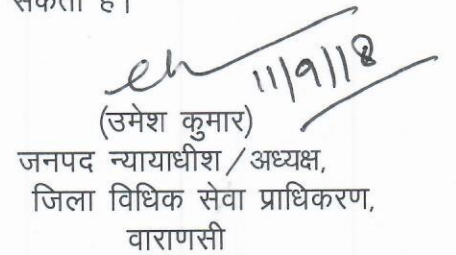 सकता है।
11/9/18
(उमेश कुमार)
जनपद न्यायाधीश/अध्यक्ष,
जिला विधिक सेवा प्राधिकरण,
वाराणसी